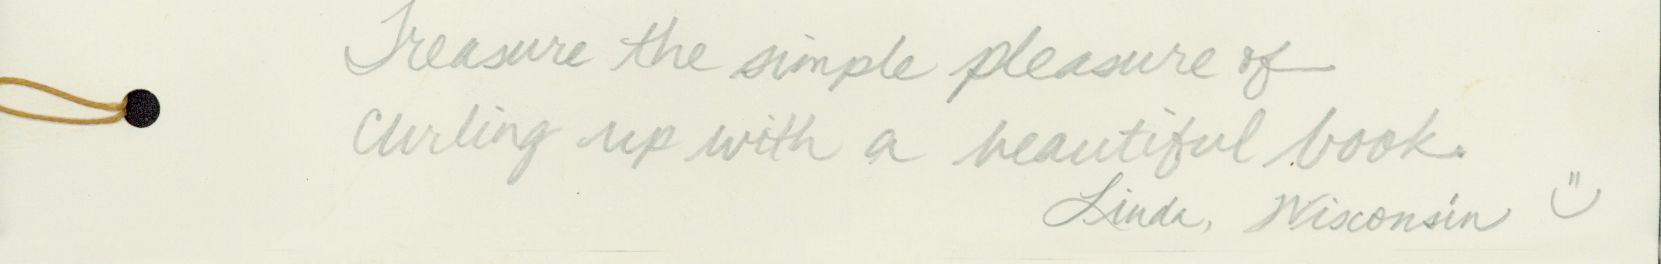 Treasure the simple pleasure of
Curling up with a beautiful book.
Linda, Wisconsin